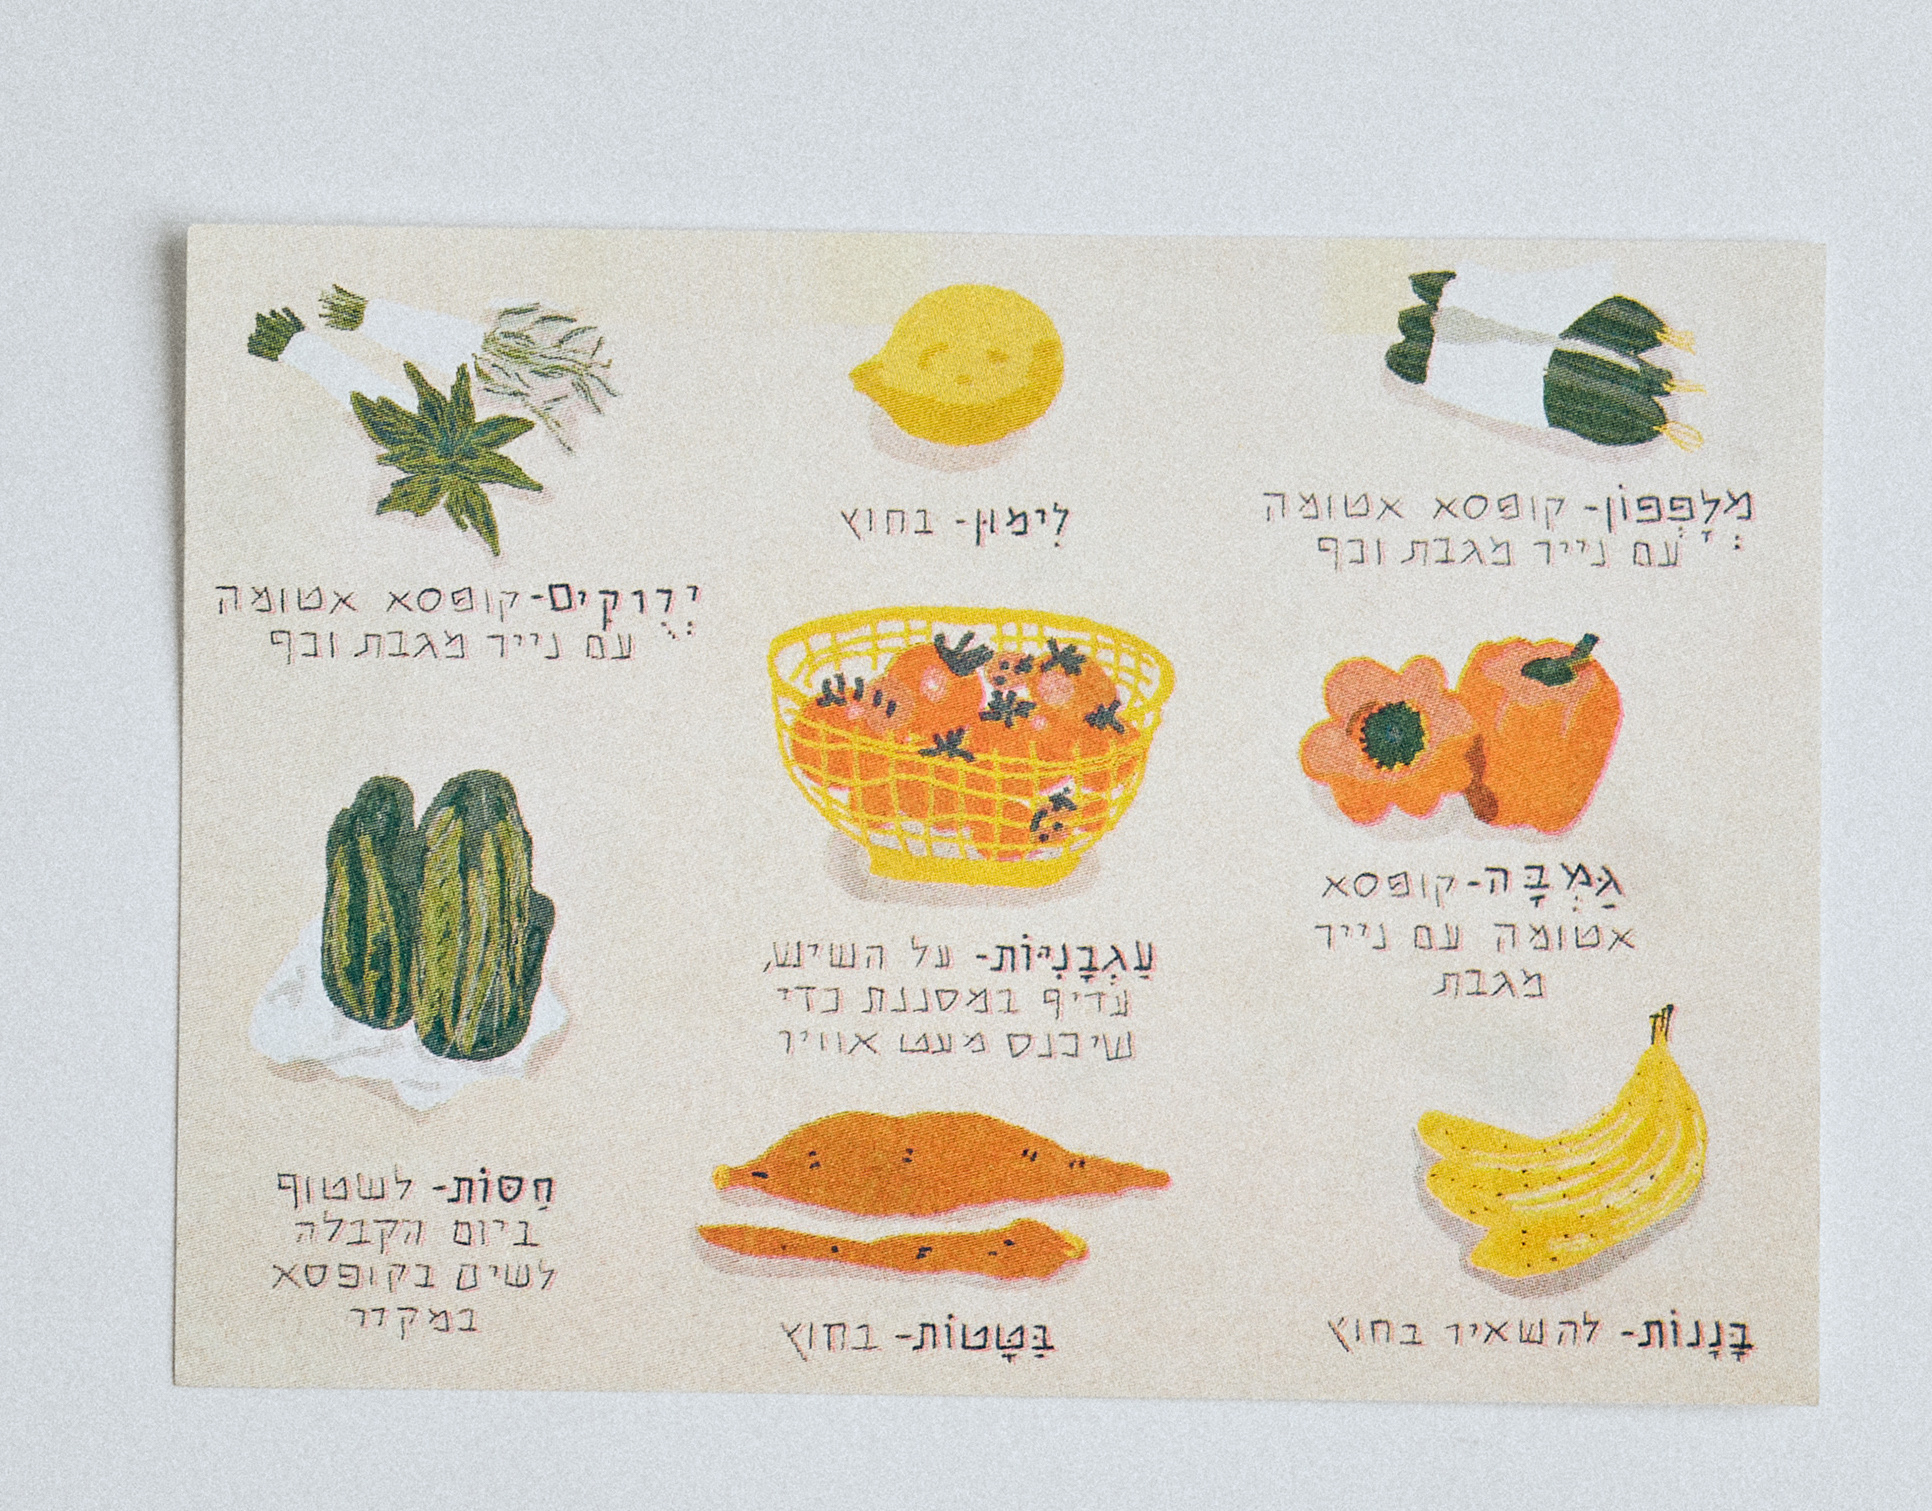 מְלָפְפוֹן- קופסא אטומה
עם נייר מגבת וכף
לִימוּן- בחוץ
יְרֻוקִים-קופסא אטומה
עם נייר מגבת וכף
גַּמְבָּה-קופסא
אטומה עם נייר
מגבת
עַגְבָנִיּוֹת- על השיש,
עדיף במסננת כדי
שיכנס מעט אוויר
חַסּוֹת- לשטוף
ביום הקבלה
לשים בקופסא
במקרר
בָּנָנוֹת- להשאיר בחוץ
בַּטָּטוֹת- בחוץ